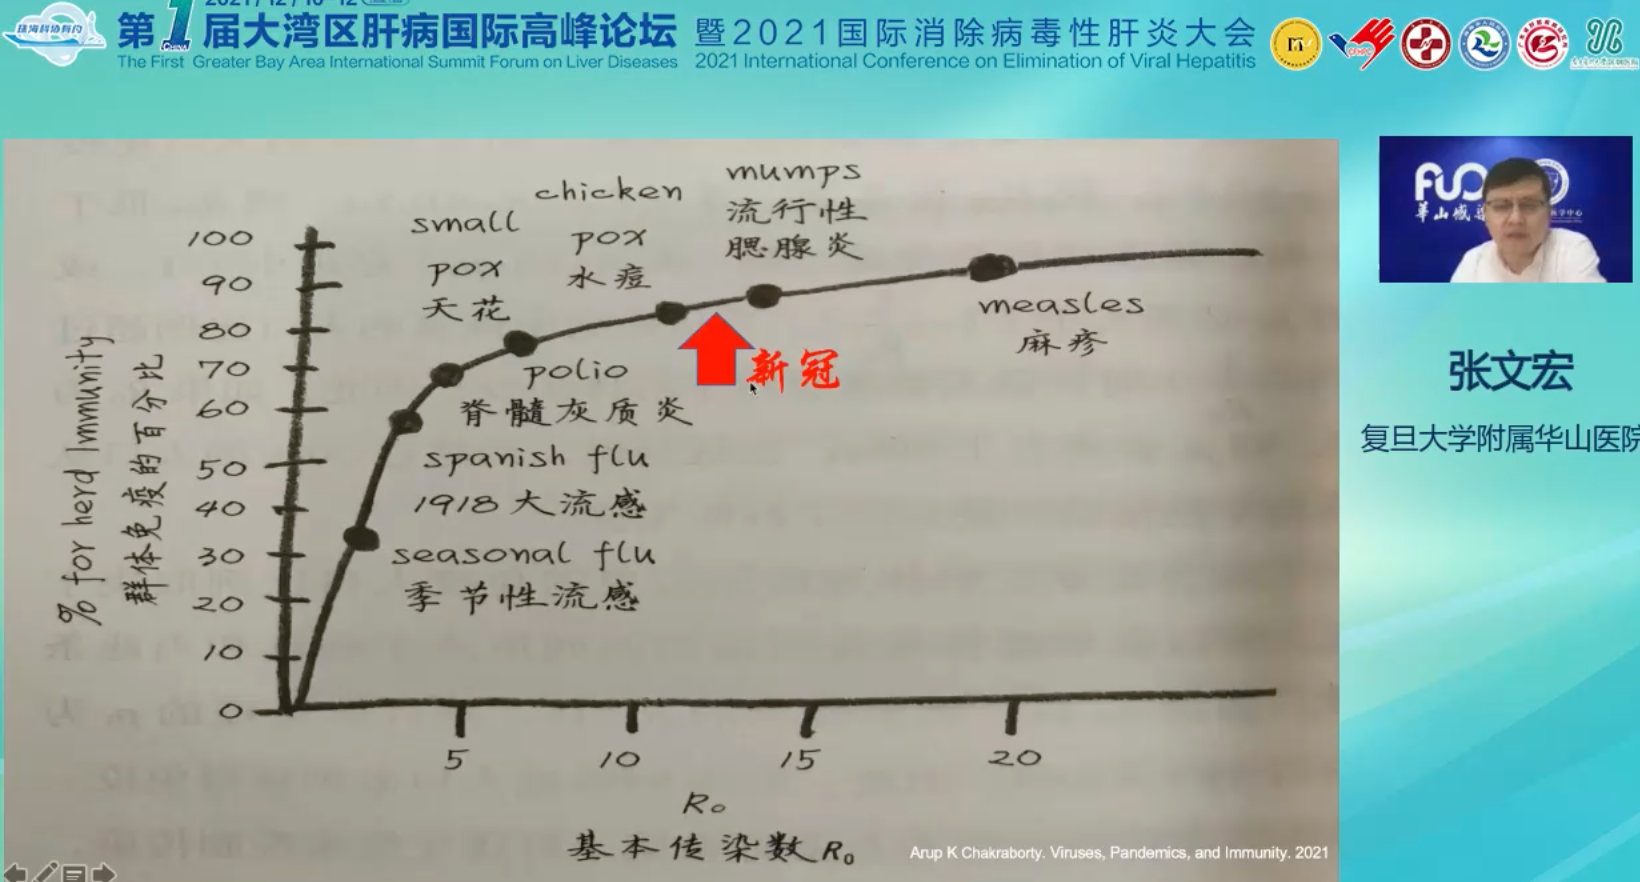 珠海科协有约
第1届大湾区肝病国际高峰论坛
暨2021国际消除病毒性肝炎大会
The First Greater Bay Area International Summit Forum on Liver Diseases
2021 International Conference on Elimination of Viral Hepatitis
mumps
流行性
腮腺炎
chicken
pox
水痘
small
pox
天花
100
90
80
70
60
50
40
30
20
10
0
% for herd Immunity
群体免疫的百分比
measles
麻疹
新冠
polio
脊髓灰质炎
spanish flu
1918大流感
seasonal flu
季节性流感
5
10
15
20
R₀
基本传染数R₀
Arup K Chakraborty. Viruses, Pandemics, and Immunity. 2021
张文宏
复旦大学附属华山医院